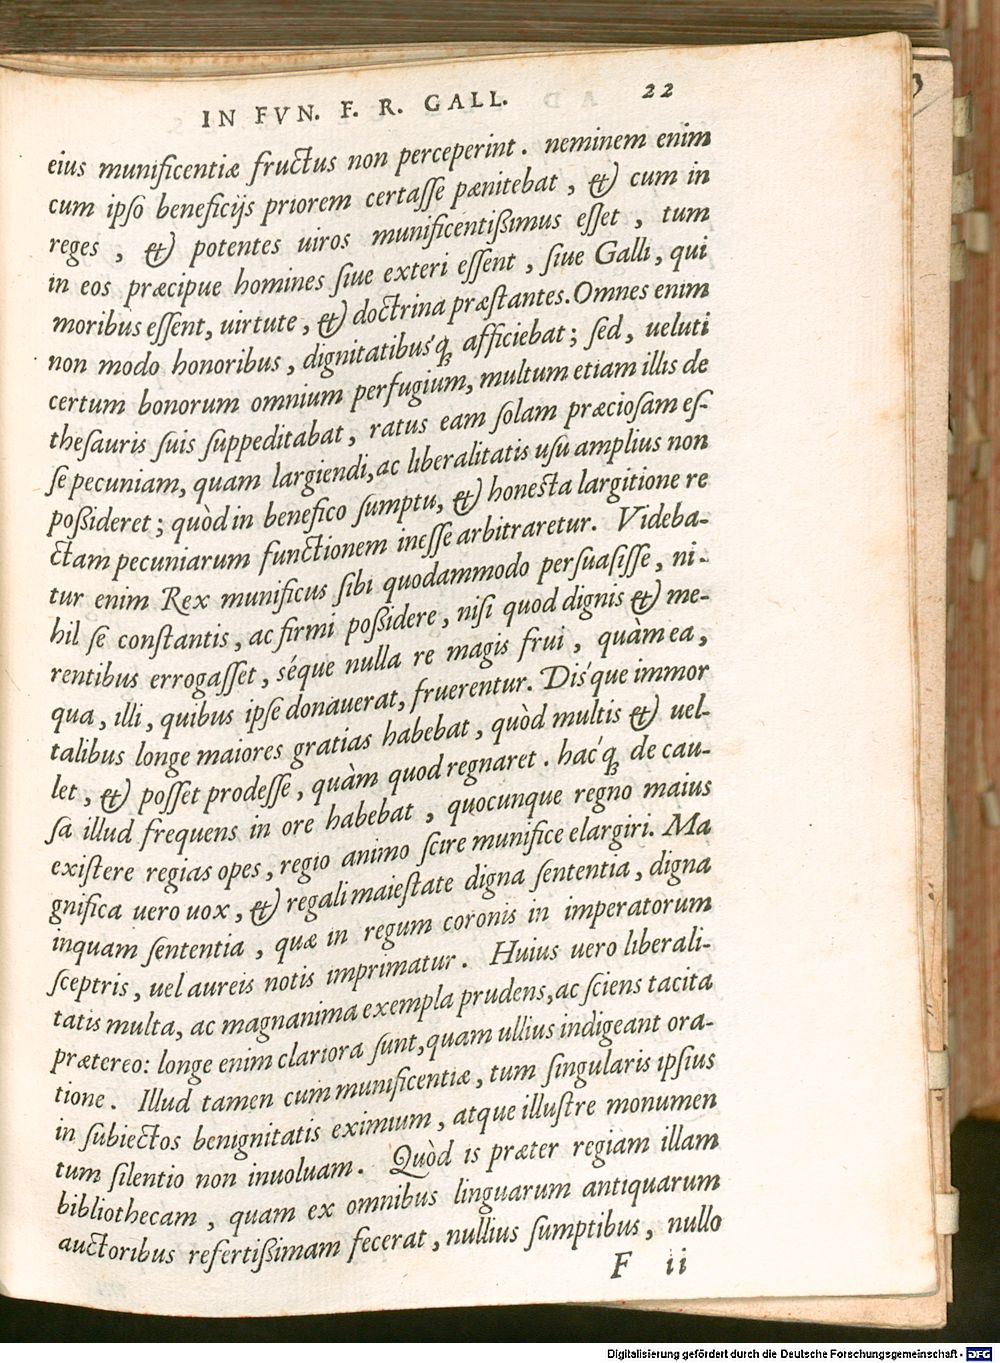 IN FVN. F. R. GALL. 22
eius munificentiæ fructus non perceperint. neminem enim
cum ipso beneficijs priorem certasse pænitebat, & cum in
reges, & potentes uiros munificentißimus esset, tum
in eos præcipue homines siue exteri essent, siue Galli, qui
moribus essent, uirtute, & doctrina præstantes. Omnes enim
non modo honoribus, dignitatibus'q; afficiebat; sed, ueluti
certum bonorum omnium perfugium, multum etiam illis de
thesauris suis suppeditabat, ratus eam solam præciosam es-
se pecuniam, quam largiendi, ac liberalitatis usu amplius non
poßideret; quòd in benefico sumptu, & honesta largitione re
ctam pecuniarum functionem inesse arbitraretur. Videba-
tur enim Rex munificus sibi quodammodo persuasisse, ni-
hil se constantis, ac firmi poßidere, nisi quod dignis & me-
rentibus errogasset, séque nulla re magis frui, quàm ea,
qua, illi, quibus ipse donauerat, fruerentur. Dis'que immor
talibus longe maiores gratias habebat, quòd multis & uel-
let, & posset prodesse, quàm quod regnaret. hac'q; de cau-
sa illud frequens in ore habebat, quocunque regno maius
existere regias opes, regio animo scire munifice elargiri. Ma
gnifica uero uox, & regali maiestate digna sententia, digna
inquam sententia, quæ in regum coronis in imperatorum
sceptris, uel aureis notis imprimatur. Huius uero liberali-
tatis multa, ac magnanima exempla prudens, ac sciens tacita
prætereo: longe enim clariora sunt, quam ullius indigeant ora-
tione. Illud tamen cum munificentiæ, tum singularis ipsius
in subiectos benignitatis eximium, atque illustre monumen
tum silentio non inuoluam. Quòd is præter regiam illam
bibliothecam, quam ex omnibus linguarum antiquarum
auctoribus refertißimam fecerat, nullius sumptibus, nullo
F ii
Digitalisierung gefördert durch die Deutsche Forschungsgemeinschaft - DFG